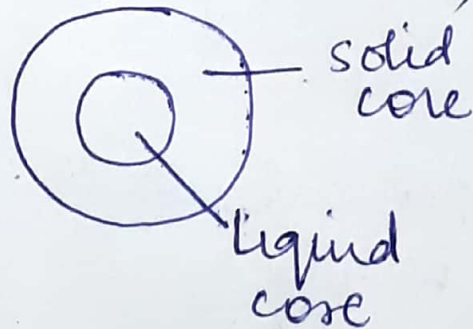 solid
core
Liquid
core